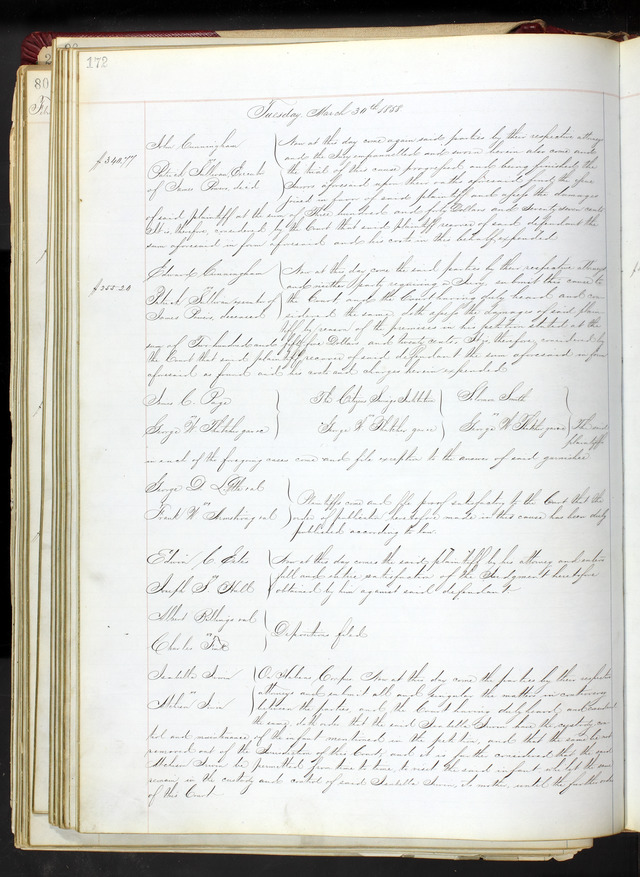 172
Tuesday March 30th 1858
John Cunningham
vs
Patrick Executor
of James decd
$340.77
Now at this day come again said parties by their respective attorneys
and the Jury empannelled and sworn herein also come and
the trial of this cause progressed and being finished the
Jurors aforesaid upon their oaths aforesaid find the issue
joined in favor of said plaintiff and assess the damages
of said plaintiff at the sum of Three hundred and forty Dollars and Seventy seven cents
It is therefore considered by the Court that said plaintiff recover of said defendant the
sum aforesaid in form aforesaid and his costs in this behalf expended
Edward Cunningham
vs
Patrick executor of
James deceased
$255.20
Now at this day come the said parties by their respective attorneys
and neither party requiring a Jury submit this cause to
the Court and the Court having duly heard and con-
sidered the same, doth assess the damages of said plain-
tiff by reason of the premises in his petition stated at the
sum of Two hundred and fifty five Dollars and twenty cents. It is therefore considered by
the Court that said plaintiff recover of said defendant the sum aforesaid in form
aforesaid as found and his costs and charges herein expended
James C. Page
vs
George W garnishee
The Citizens Savings Institution
vs
George W garnishee
Smith
vs
George W garnishee
The said
plaintiffs
in each of the foregoing cases come and file exception to the answer of said garnishee
George D et al
vs
Frank W Armstrong et al
Plaintiffs come and file proof satisfactory to the Court that the
order of publication heretofore made in this cause has been duly
published according to law.
Edwin C Estes
vs
Joseph S
Now at this day comes the said plaintiff by his attorney and enters
full and entire satisfaction of the Judgment heretofore
obtained by him against said defendant
Albert et al
vs
Charles
Depositions filed
Isabella Irwin
vs
Irwin
On Habeas Corpus Now at this day come the parties by their respective
attorneys and submit all and singular the matters in controversy
between the parties and the Court having duly heard and considered
the same, doth order that the said Isabella Irwin have the custody con-
trol and maintenance of the infant mentioned in the petition, and that the same be not
removed out of the Jurisdiction of this Court, and it is further considered that the said
Irwin be permitted from time to time, to visit the said infant whilst the same
remains in the custody and control of said Isabella Irwin, its mother, until the further order
of this Court